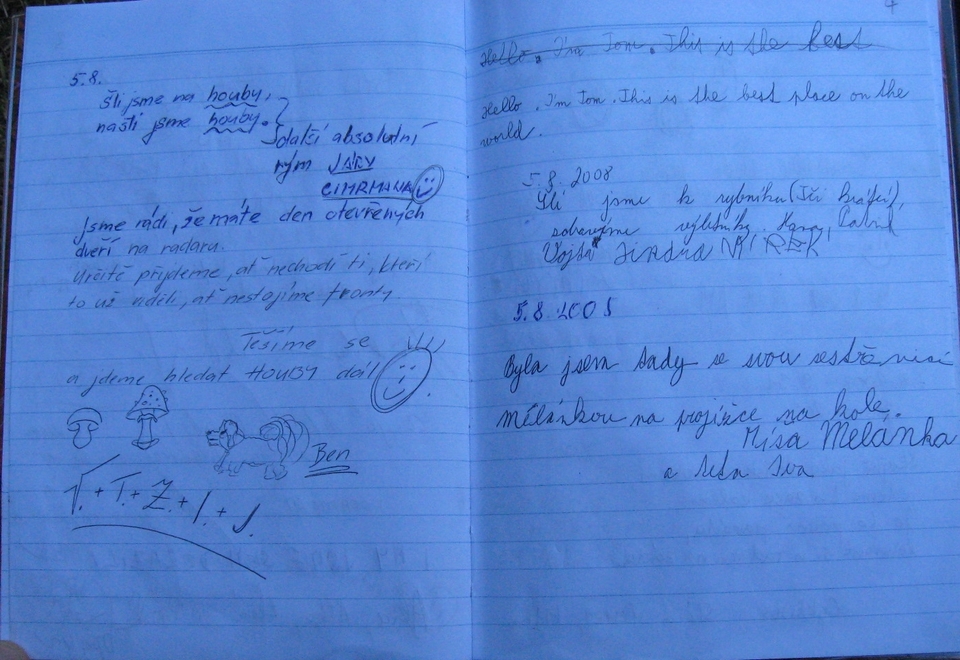 5.8.
šli jsme na houby,
našli jsme houby.
další absolutní
rým JÁRY
CIMRMANA
Jsme rádi, že máte den otevřených
dveří na radaru.
Určitě přijdeme, ať nechodí ti, kteří
to už viděli, ať nestojíme fronty.
Těšíme se
a jdeme hledat HOUBY dál
Ben
V. + T. + Z. + I. + J.
4
Hello, I'm Tom. This is the best
Hello, I'm Tom. This is the best place on the
world.
5.8.2008
Šli jsme k rybníku
Vojta JINDRA MÍREK
5.8.2008
Byla jsem tady se svou sestřenicí
Mélánkou na projížce na kole.
Míša Melánka
a teta Iva